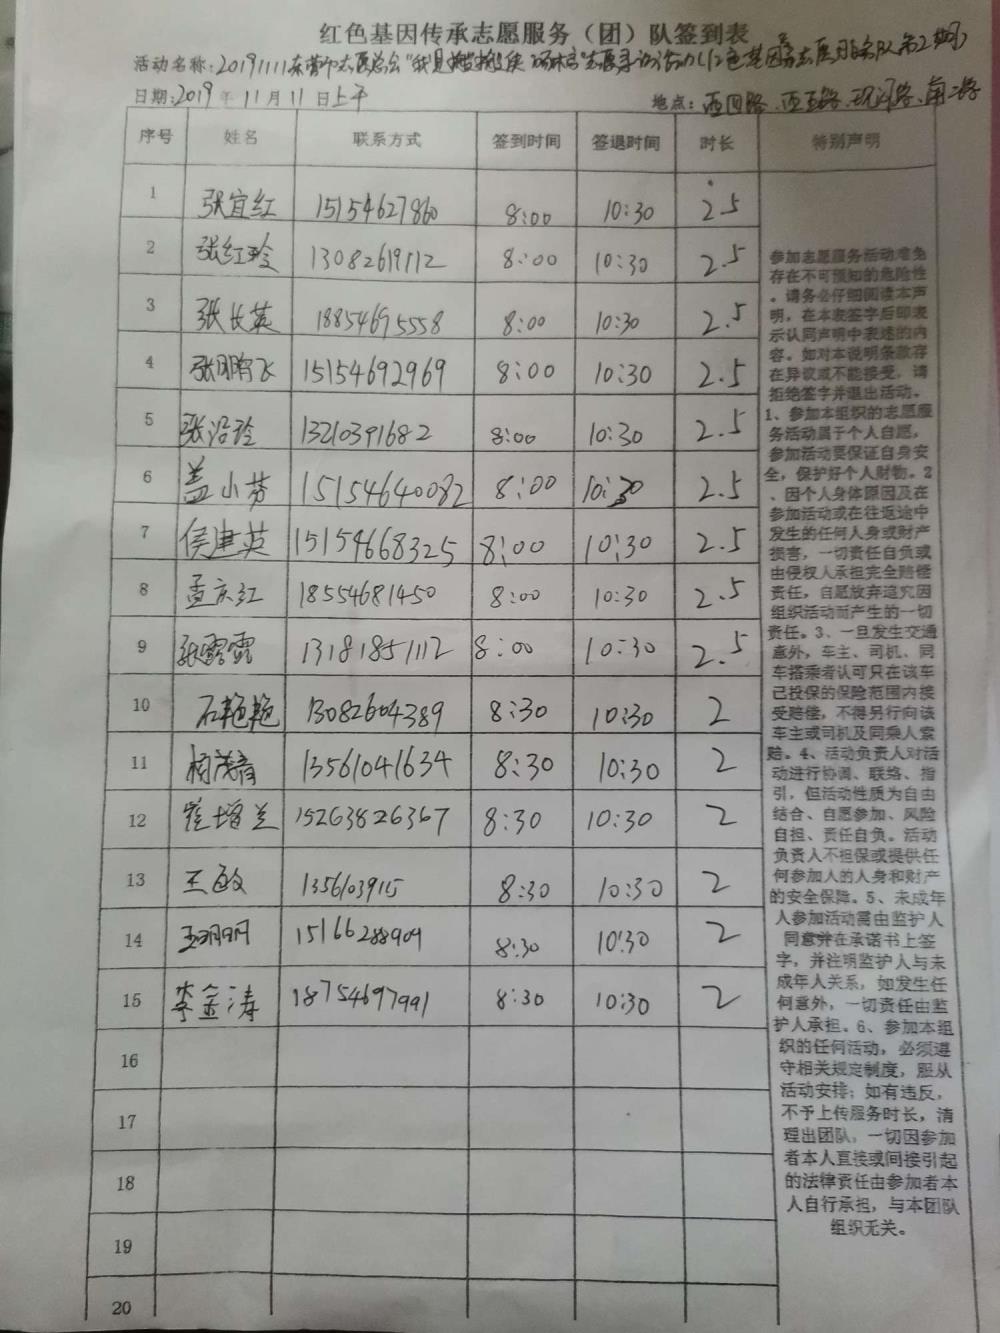 红色基因传承志愿服务（团）队签到表
活动名称:20191111东营市志愿总会
日期:2019年11月11日上午 地点:西四路、西五路、
序号 姓名 联系方式 签到时间 签退时间 时长 特别声明
1 张宜红 15154627860 8:00 10:30 2.5
2 张红玲 13082619112 8:00 10:30 2.5
3 张长英 18854695558 8:00 10:30 2.5
4 张鹏飞 15154692969 8:00 10:30 2.5
5 张沿玲 13210391682 8:00 10:30 2.5
6 盖小芬 15154640082 8:00 10:30 2.5
7 侯建英 15154668325 8:00 10:30 2.5
8 孟庆红 18554681450 8:00 10:30 2.5
9 张露露 13181851112 8:00 10:30 2.5
10 石艳艳 13082604389 8:30 10:30 2
11 13561041634 8:30 10:30 2
12 崔增兰 15263826367 8:30 10:30 2
13 王敏 1356103915 8:30 10:30 2
14 15166288909 8:30 10:30 2
15 李金涛 18754697991 8:30 10:30 2
16
17
18
19
20
参加志愿服务活动难免
存在不可预知的危险性
。请务必仔细阅读本声
明，在本表签字后即表
示认同声明中表述的内
容。如对本说明条款存
在异议或不能接受，请
拒绝签字并退出活动。
1、参加本组织的志愿服
务活动属于个人自愿，
参加活动要保证自身安
全，保护好个人财物。2
、因个人身体原因及在
参加活动或在往返途中
发生的任何人身或财产
损害，一切责任自负或
由侵权人承担完全赔偿
责任，自愿放弃追究因
组织活动而产生的一切
责任。3、一旦发生交通
意外，车主、司机、同
车搭乘者认可只在该车
已投保的保险范围内接
受赔偿，不得另行向该
车主或司机及同乘人索
赔。4、活动负责人对活
动进行协调、联络、指
引，但活动性质为自由
结合、自愿参加、风险
自担、责任自负。活动
负责人不担保或提供任
何参加人的人身和财产
的安全保障。5、未成年
人参加活动需由监护人
同意并在承诺书上签
字，并注明监护人与未
成年人关系，如发生任
何意外，一切责任由监
护人承担。6、参加本组
织的任何活动，必须遵
守相关规定制度，服从
活动安排；如有违反，
不予上传服务时长，清
理出团队，一切因参加
者本人直接或间接引起
的法律责任由参加者本
人自行承担，与本团队
组织无关。